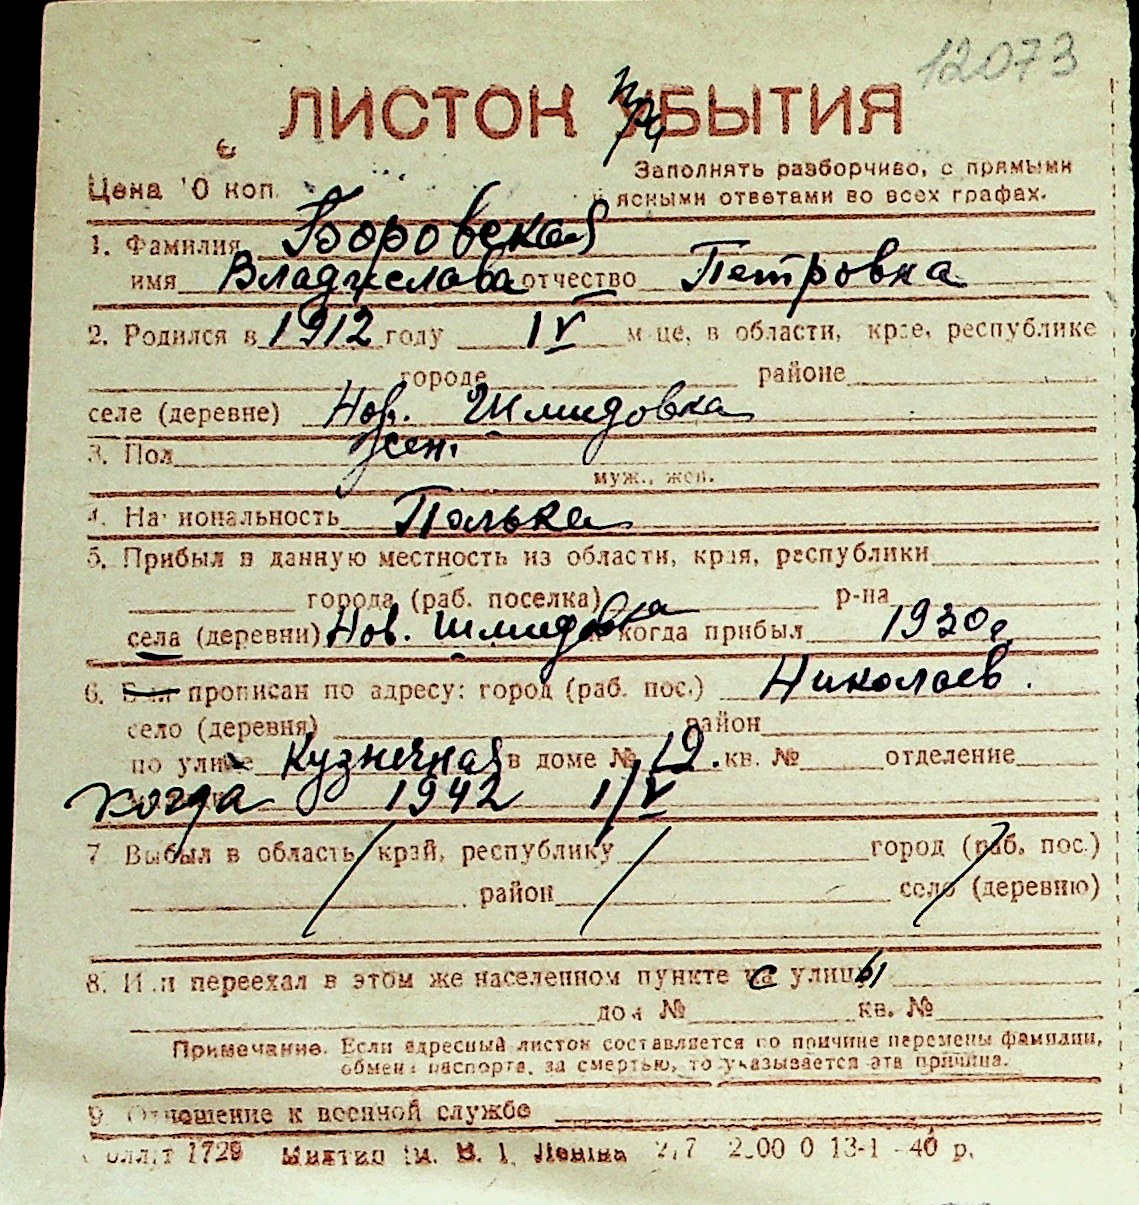 12073
ЛИСТОК УБЫТИЯ
Цена 10 коп.
Заполнять разборчиво, с прямыми
и ясными ответами во всех графах.
1. Фамилия Боровская
имя Владислава отчество Петровна
2. Родился в 1912 году IV м-це, в области, крае, республике
городе районе
селе (деревне) Нов. Шмидовка
3. Пол жен.
муж., жен.
4. Национальность Полька
5. Прибыл в данную местность из области, края, республики
города (раб. поселка) р-на
села (деревни) Нов. Шмидовка когда прибыл 1930 г.
6. Был прописан по адресу: город (раб. пос.) Николаев.
село (деревня) район
по улице Кузнечная в доме № 19. кв. № отделение
когда 1942 1/V
7 Выбыл в область, край, республику город (раб. пос.)
район село (деревню)
8. Или переехал в этом же населенном пункте с улицы
дом № кв. №
Примечание. Если адресный листок составляется по причине перемены фамилии,
обмена паспорта, за смертью, то указывается эта причина.
9. Отношение к военной службе
1729 ім. В. І. Леніна 13-1 - 40 р.